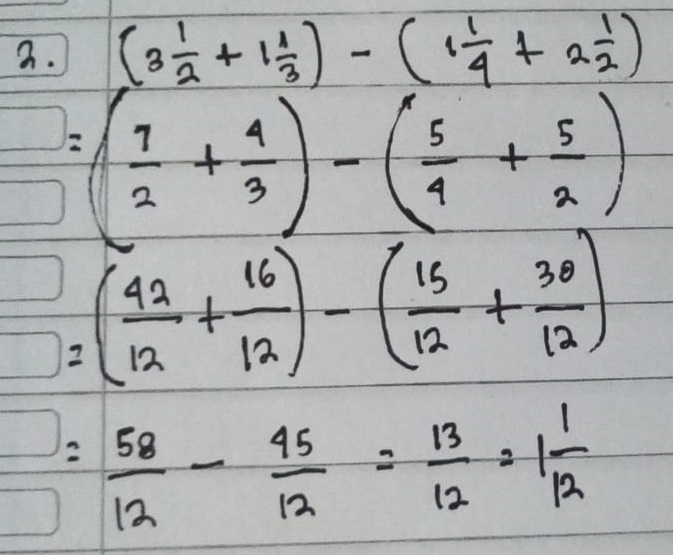 2. (3 1/2 + 1 1/3) - (1 1/4 + 2 1/2)
= (7/2 + 4/3) - (5/4 + 5/2)
= (42/12 + 16/12) - (15/12 + 30/12)
= 58/12 - 45/12 = 13/12 = 1 1/12